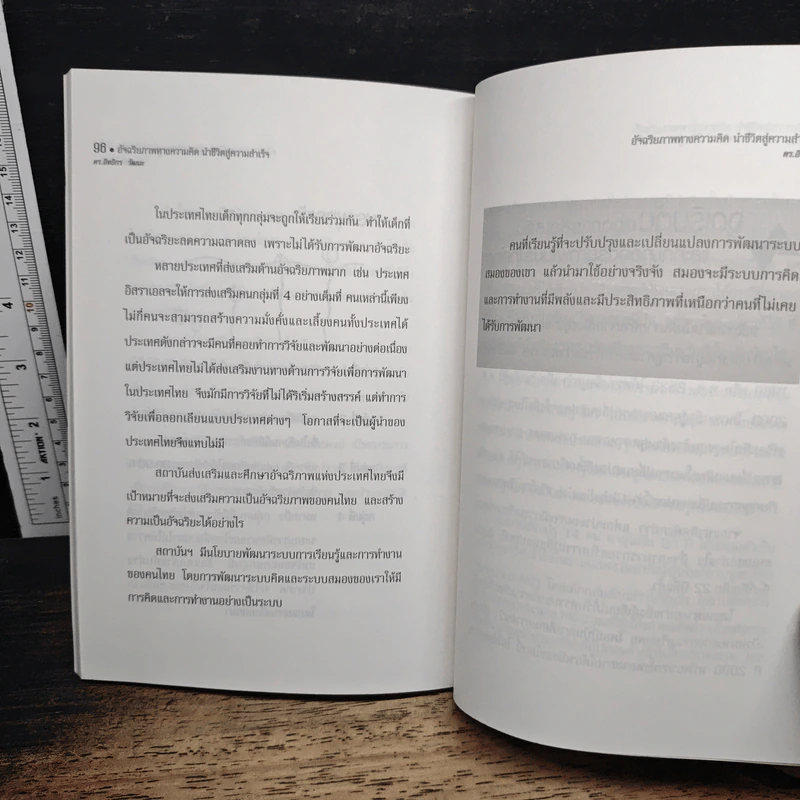 96 ● อัจฉริยภาพทางความคิด นำชีวิตสู่ความสำเร็จ
ดร.อิทธิกร วัฒนะ
ในประเทศไทยเด็กทุกกลุ่มจะถูกให้เรียนร่วมกัน ทำให้เด็กที่
เป็นอัจฉริยะลดความฉลาดลง เพราะไม่ได้รับการพัฒนาอัจฉริยะ
หลายประเทศที่ส่งเสริมด้านอัจฉริยภาพมาก เช่น ประเทศ
อิสราเอลจะให้การส่งเสริมคนกลุ่มที่ 4 อย่างเต็มที่ คนเหล่านี้เพียง
ไม่กี่คนจะสามารถสร้างความมั่งคั่งและเลี้ยงคนทั้งประเทศได้
ประเทศดังกล่าวจะมีคนที่คอยทำการวิจัยและพัฒนาอย่างต่อเนื่อง
แต่ประเทศไทยไม่ได้ส่งเสริมงานทางด้านการวิจัยเพื่อการพัฒนา
ในประเทศไทย จึงมักมีการวิจัยที่ไม่ได้ริเริ่มสร้างสรรค์ แต่ทำการ
วิจัยเพื่อลอกเลียนแบบประเทศต่างๆ โอกาสที่จะเป็นผู้นำของ
ประเทศไทยจึงแทบไม่มี
สถาบันส่งเสริมและศึกษาอัจฉริภาพแห่งประเทศไทยจึงมี
เป้าหมายที่จะส่งเสริมความเป็นอัจฉริยภาพของคนไทย และสร้าง
ความเป็นอัจฉริยะได้อย่างไร
สถาบันฯ มีนโยบายพัฒนาระบบการเรียนรู้และการทำงาน
ของคนไทย โดยการพัฒนาระบบคิดและระบบสมองของเราให้มี
การคิดและการทำงานอย่างเป็นระบบ
อัจฉริยภาพทางความคิด นำชีวิตสู่ความสำ
คนที่เรียนรู้ที่จะปรับปรุงและเปลี่ยนแปลงการพัฒนาระบบ
สมองของเขา แล้วนำมาใช้อย่างจริงจัง สมองจะมีระบบการคิด
และการทำงานที่มีพลังและมีประสิทธิภาพที่เหนือกว่าคนที่ไม่เคย
ได้รับการพัฒนา